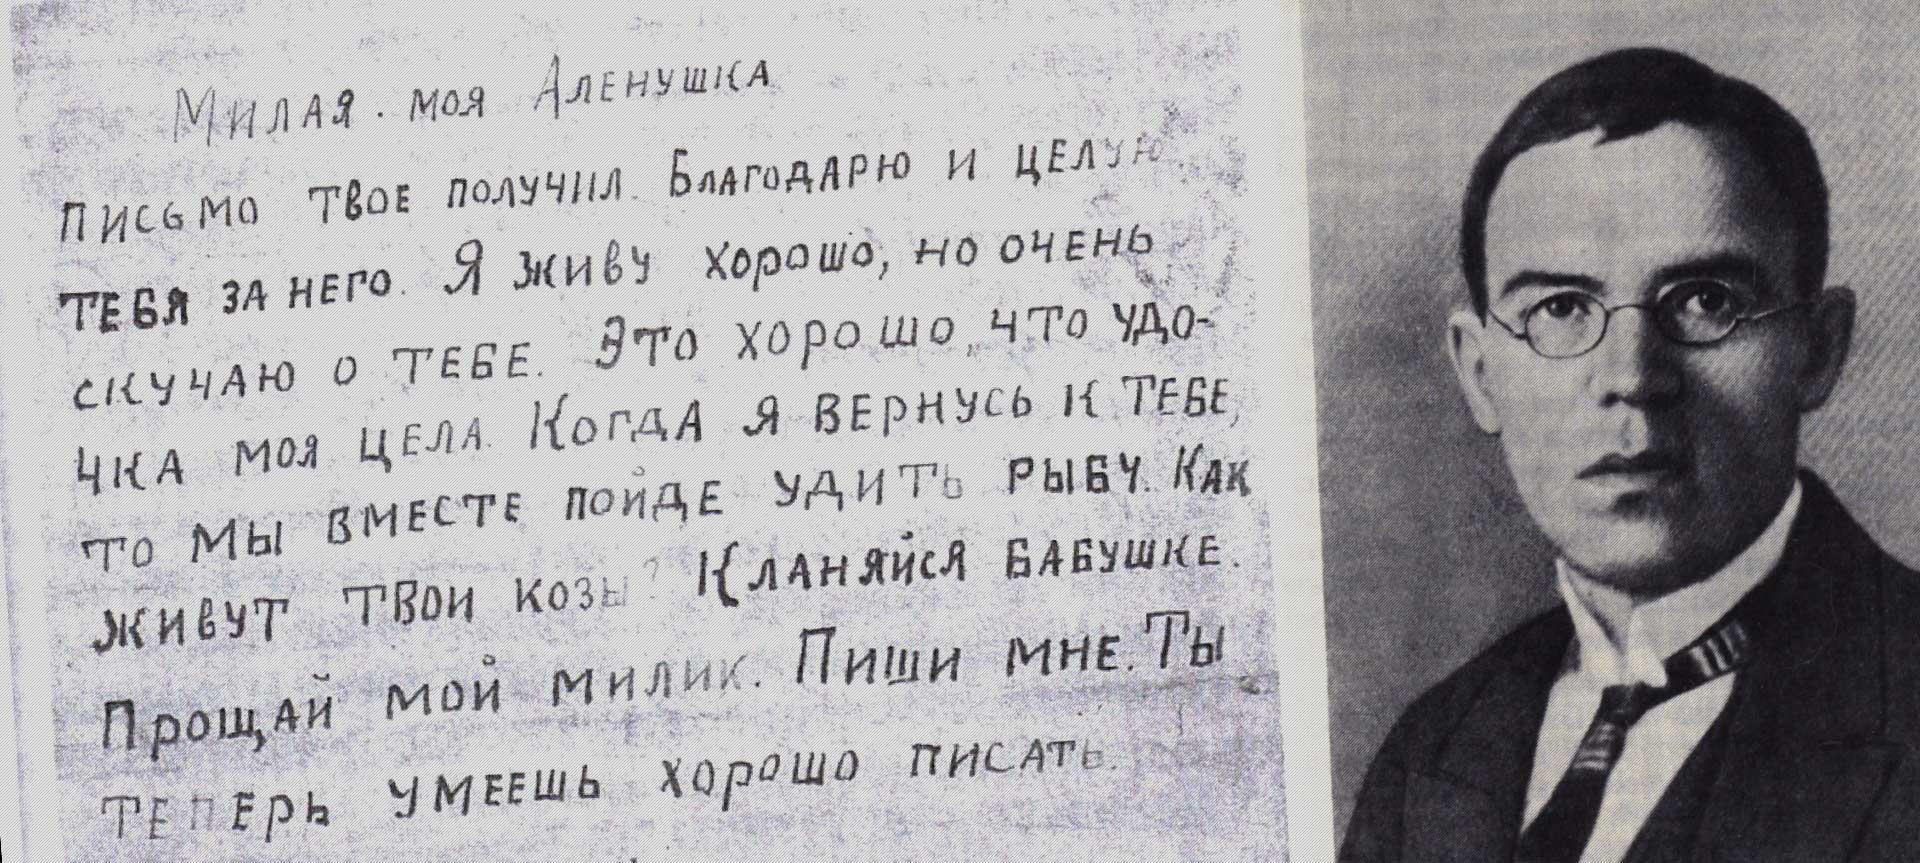 Милая. моя Аленушка
письмо твое получил. Благодарю и целую
тебя за него. Я живу хорошо, но очень
скучаю о тебе. Это хорошо, что удо-
чка моя цела. Когда я вернусь к тебе,
то мы вместе пойде удить рыбу. Как
живут твои козы? Кланяйся бабушке.
Прощай мой милик. Пиши мне. Ты
теперь умеешь хорошо писать.